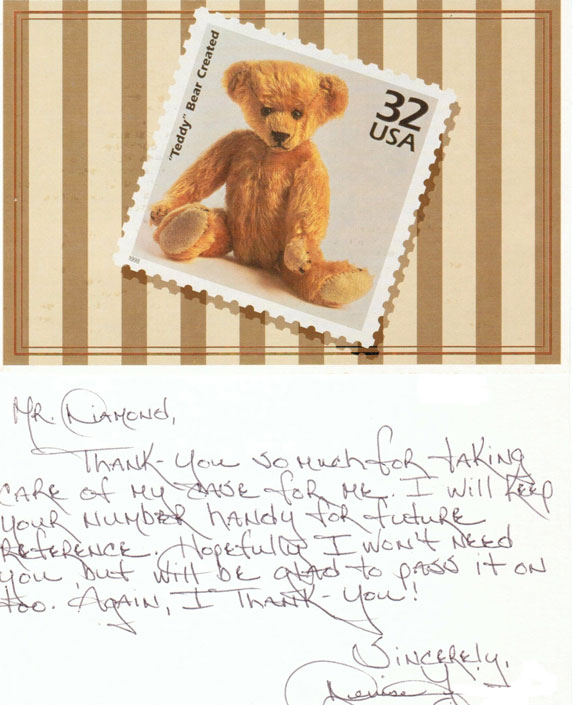 "Teddy" Bear Created
32
USA
1998
Mr. Diamond,
Thank-you so much for taking
care of my case for me. I will keep
your number handy for future
reference. Hopefully I won't need
you, but will be glad to pass it on
too. Again, I Thank-you!
Sincerely,
Denise